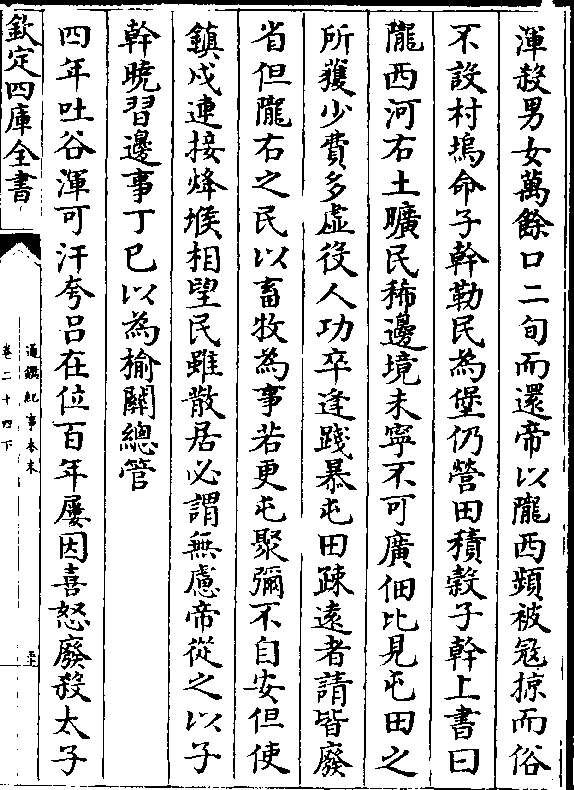 渾殺男女萬餘口二旬而還帝以隴西頻被寇掠而俗
不設村塢命子幹勒民為堡仍營田積穀子幹上書曰
隴西河右土曠民稀邊境未寧不可廣佃比見屯田之
所獲少費多虛役人功卒逢踐暴屯田疎遠者請皆廢
省但隴右之民以畜牧為事若更屯聚彌不自安但使
鎮戍連接烽堠相望民雖散居必謂無慮帝從之以子
幹曉習邊事丁巳以為榆關總管
四年吐谷渾可汗夸呂在位百年屢因喜怒廢殺太子
欽定四庫全書
通鑑紀事本末
卷二十四下